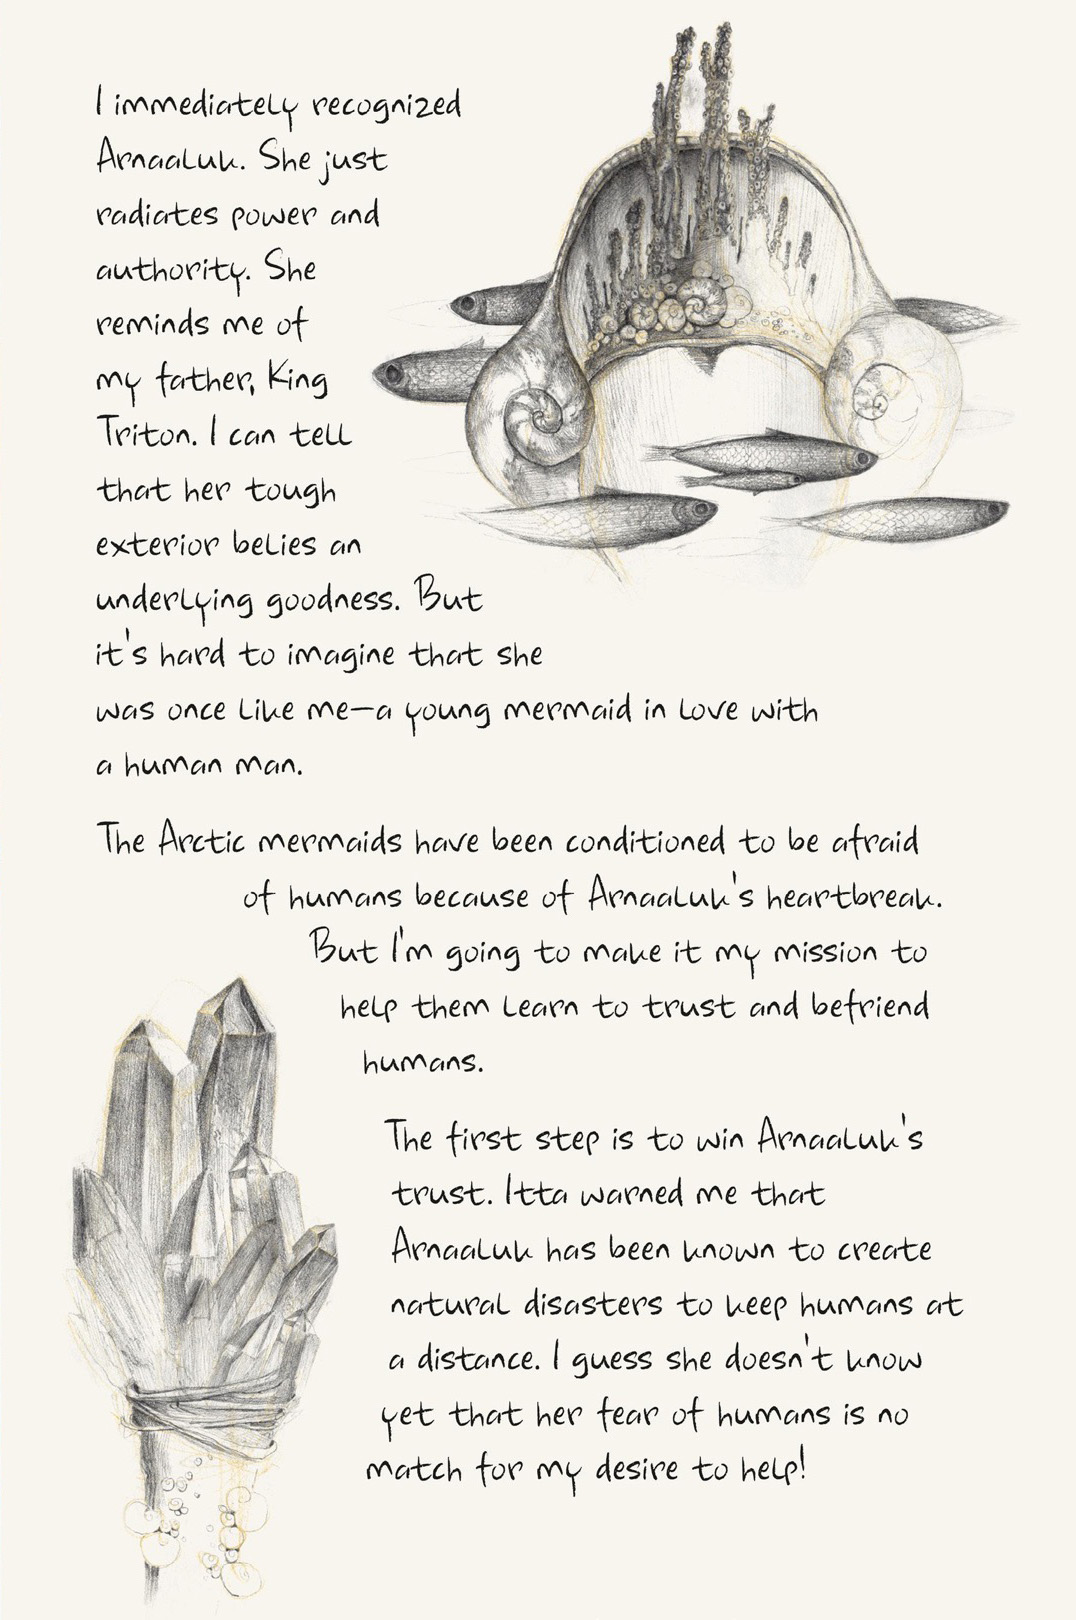 I immediately recognized
Arnaaluk. She just
radiates power and
authority. She
reminds me of
my father, King
Triton. I can tell
that her tough
exterior belies an
underlying goodness. But
it's hard to imagine that she
was once like me—a young mermaid in love with
a human man.
The Arctic mermaids have been conditioned to be afraid
of humans because of Arnaaluk's heartbreak.
But I'm going to make it my mission to
help them learn to trust and befriend
humans.
The first step is to win Arnaaluk's
trust. Itta warned me that
Arnaaluk has been known to create
natural disasters to keep humans at
a distance. I guess she doesn't know
yet that her fear of humans is no
match for my desire to help!